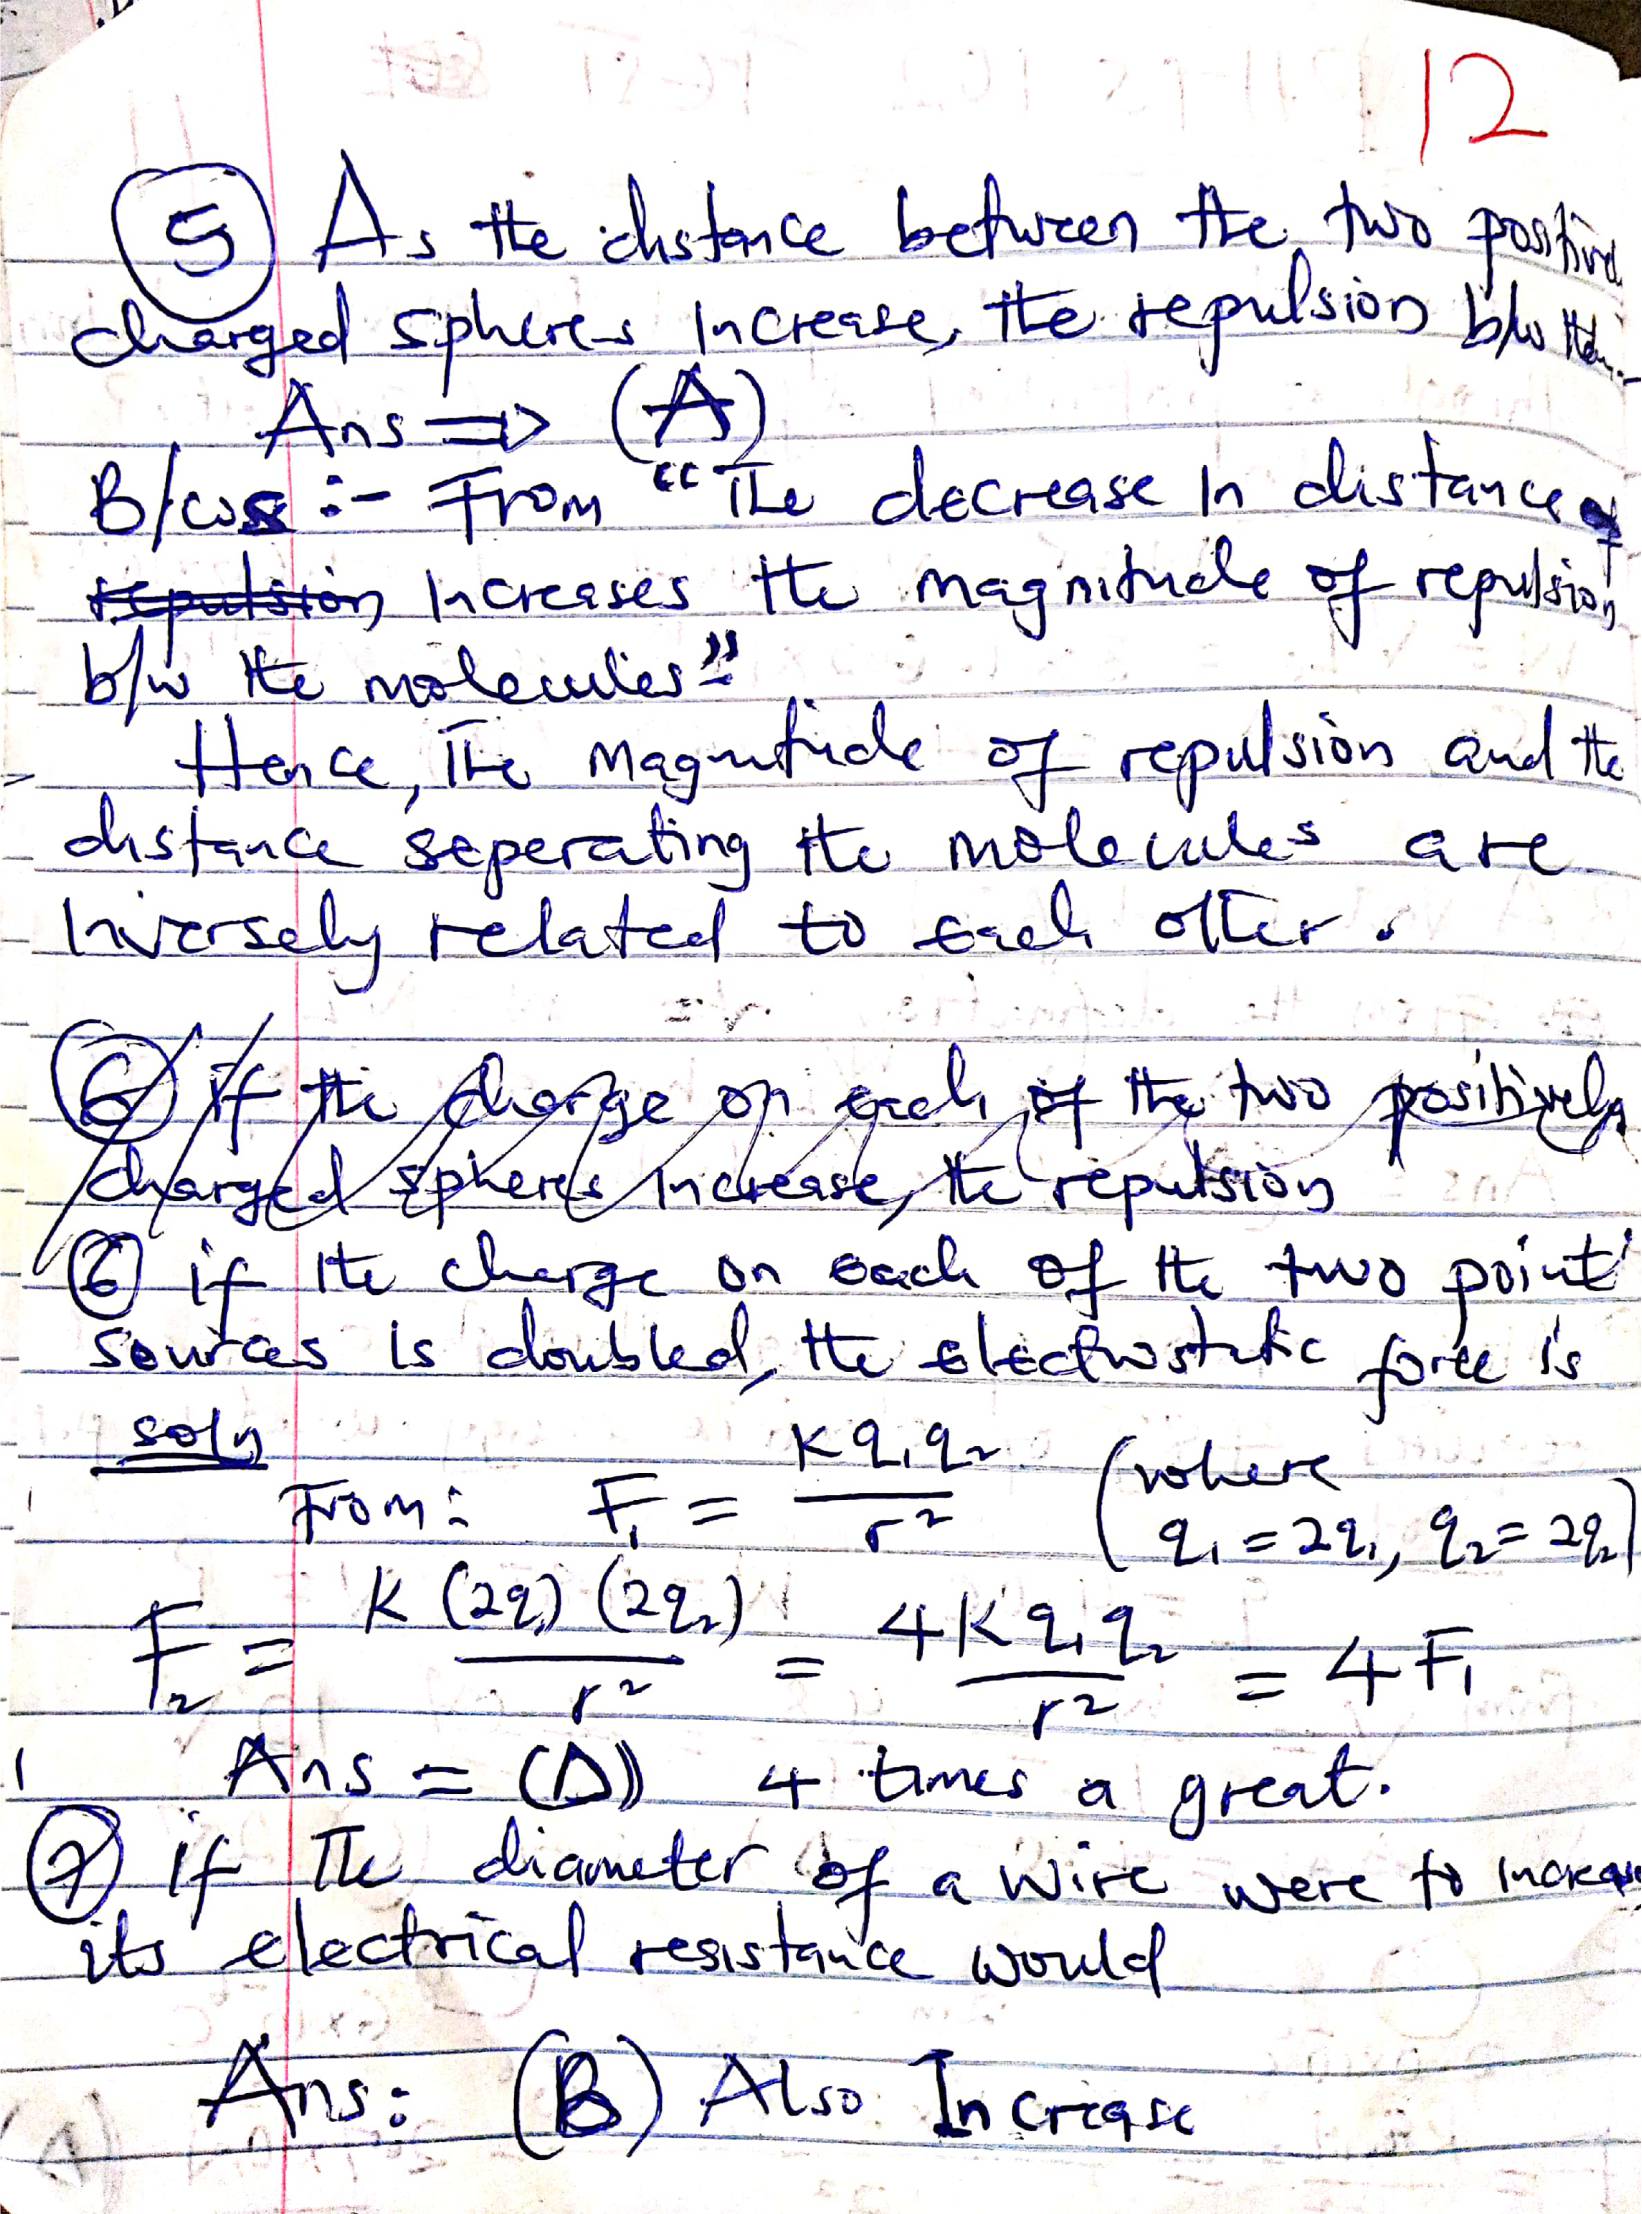 12
(5) As the distance between the two positive
charged spheres increase, the repulsion b/w them
Ans => (A)
B/cos :- From "The decrease in distance of
repulsion increases the magnitude of repulsion
b/w the molecules"
Hence, The magnitude of repulsion and the
distance seperating the molecules are
inversely related to each other.
(6) if the charge on each of the two positively
charged spheres increase, the repulsion
(6) if the charge on each of the two point
sources is doubled, the electrostatic force is
soln
From: F₁ = Kq₁q₂/r² (where
q₁ = 2q₁, q₂ = 2q₂)
F₂ = K(2q₁)(2q₂)/r² = 4Kq₁q₂/r² = 4F₁
Ans = (D) 4 times a great.
(7) if The diameter of a wire were to increase
its electrical resistance would
Ans: (B) Also Increase